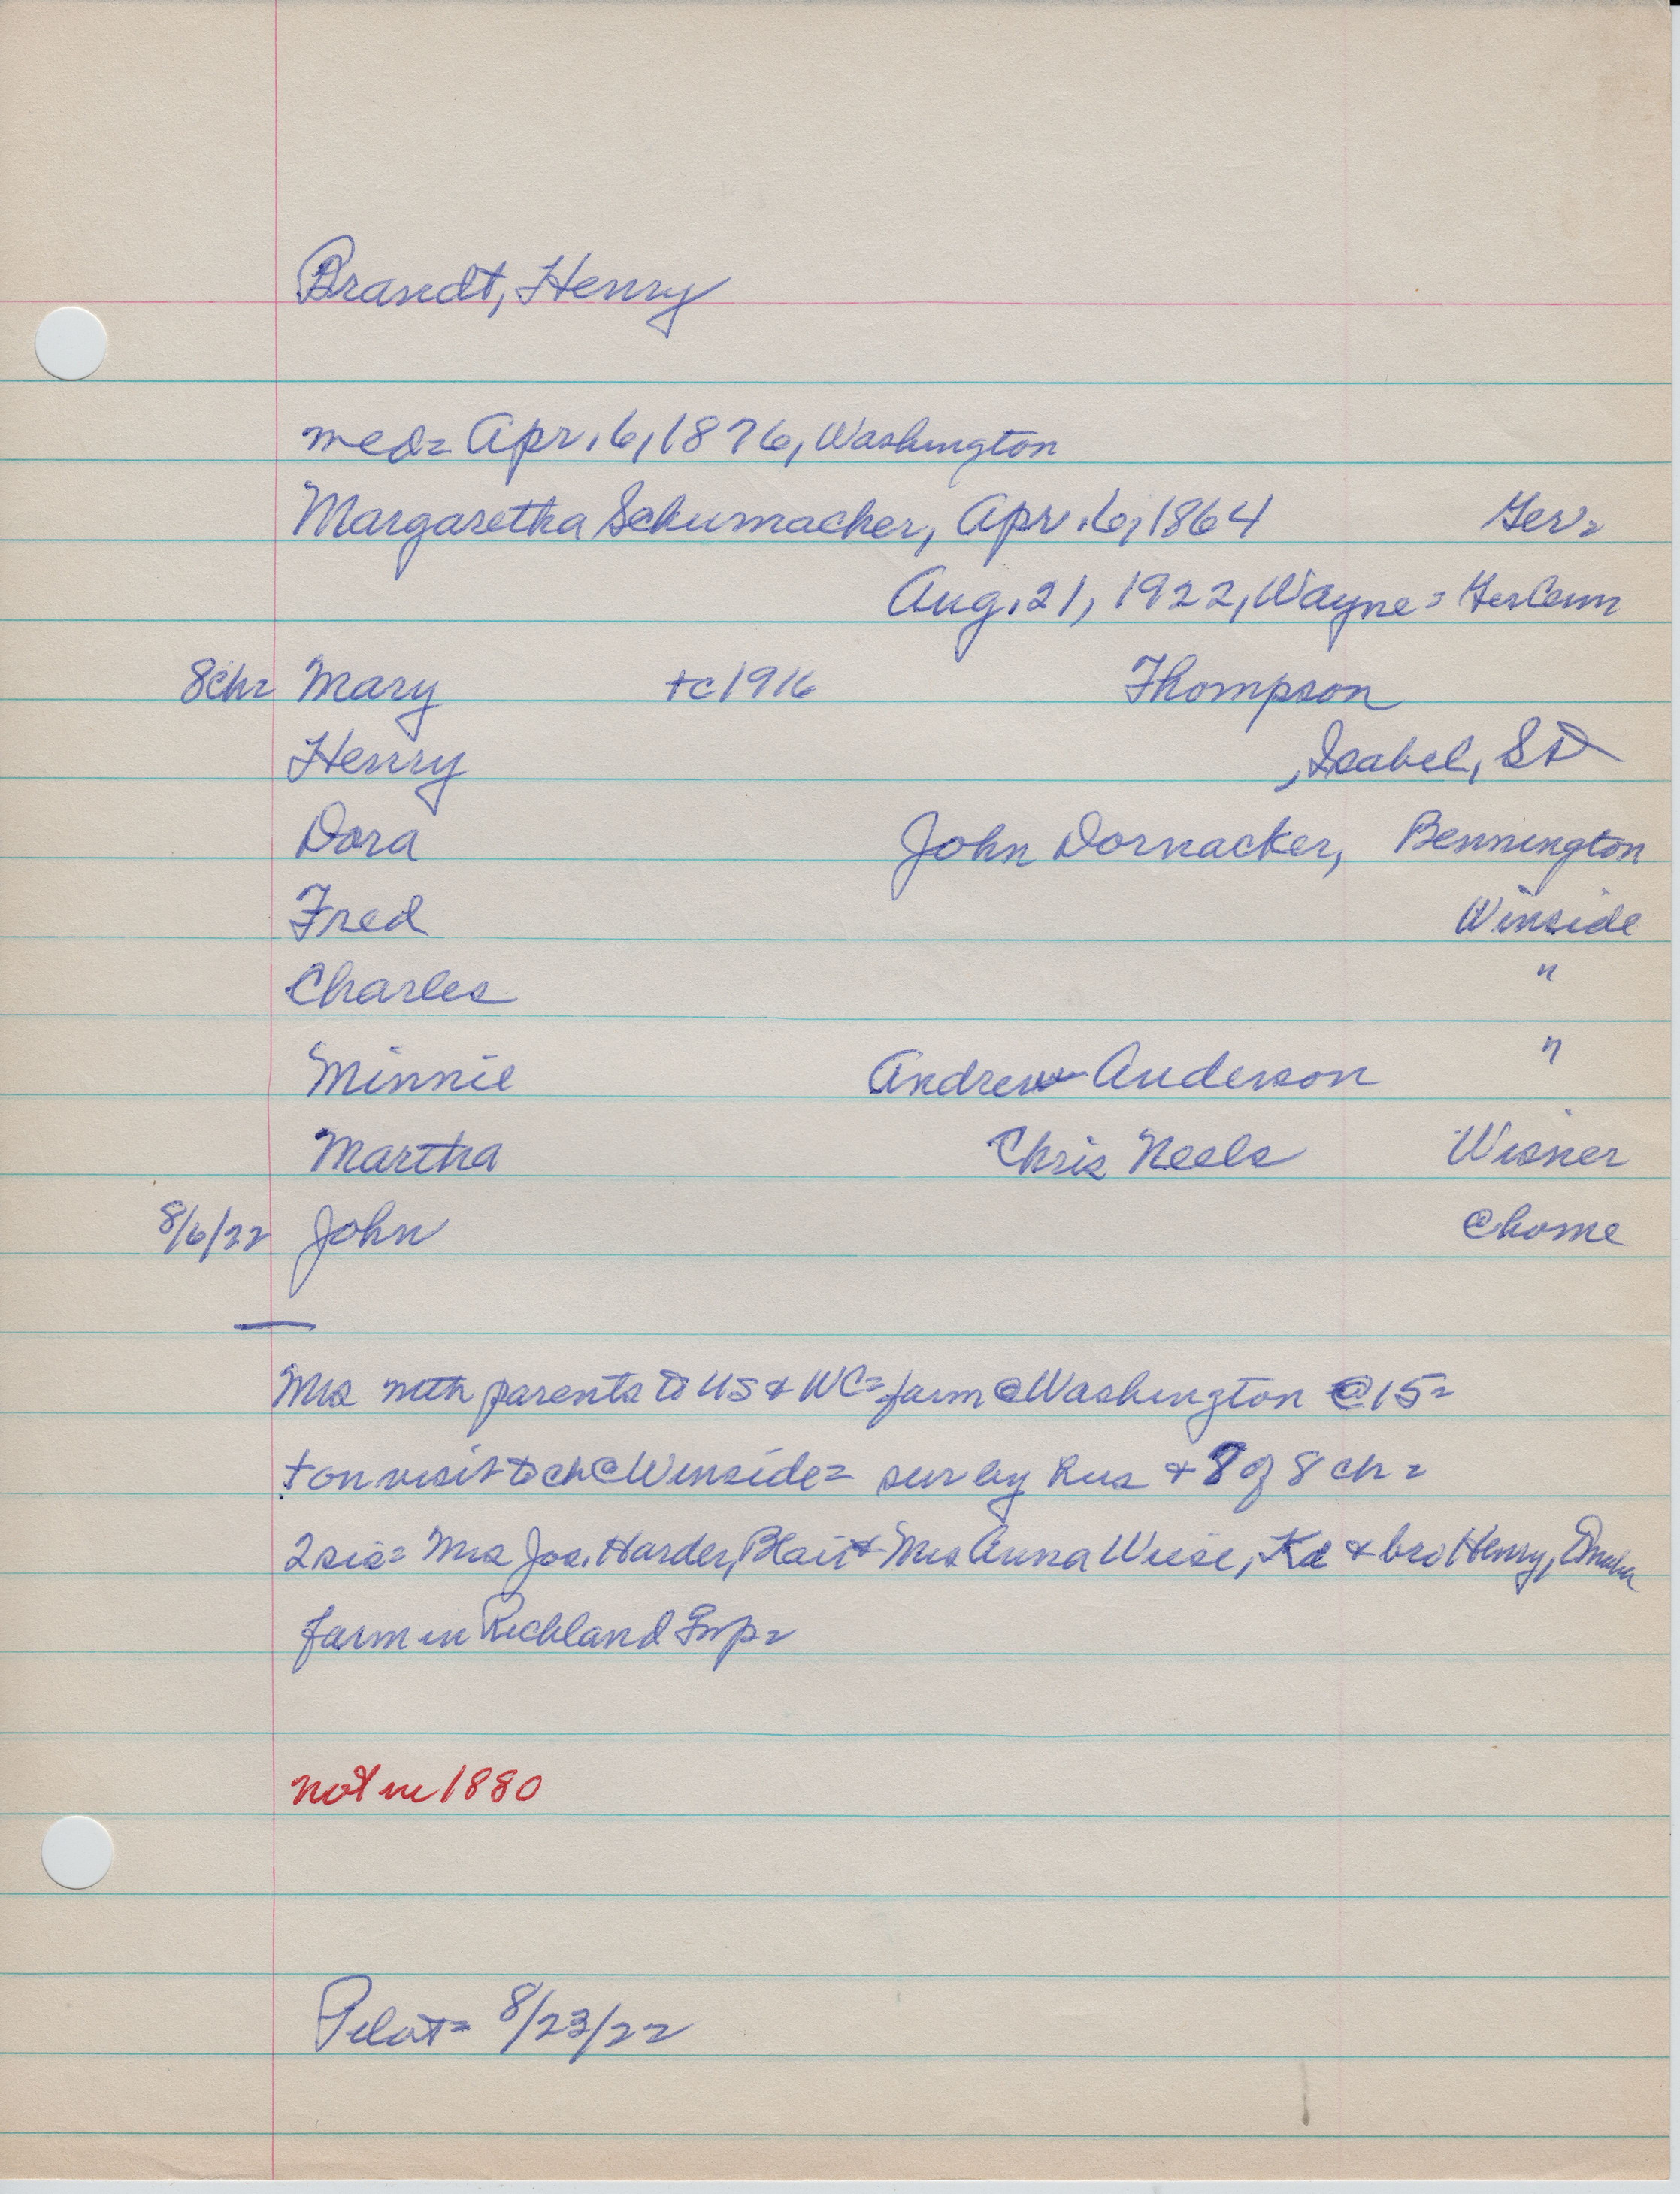 Brandt, Henry
med= Apr. 6, 1876, Washington
Margaretha Schumacher, Apr. 6, 1864 Ger=
Aug. 21, 1922, Wayne = GerCem
8ch= Mary +c1916 Thompson
Henry , Isabel, SD
Dora John Dornacker, Bennington
Fred Winside
Charles "
Minnie Andrew Anderson "
Martha Chris Neels Wisner
8/6/22 John @home
Mrs with parents to US & WC= farm @ Washington @15=
+ on visit to ch @ Winside= sur by hus & 8 of 8 ch=
2 sis= Mrs Jos. Harder, Blair & Mrs Anna Wiese, & bro Henry, Omaha
farm in Richland Twp=
not in 1880
Pilot= 8/23/22